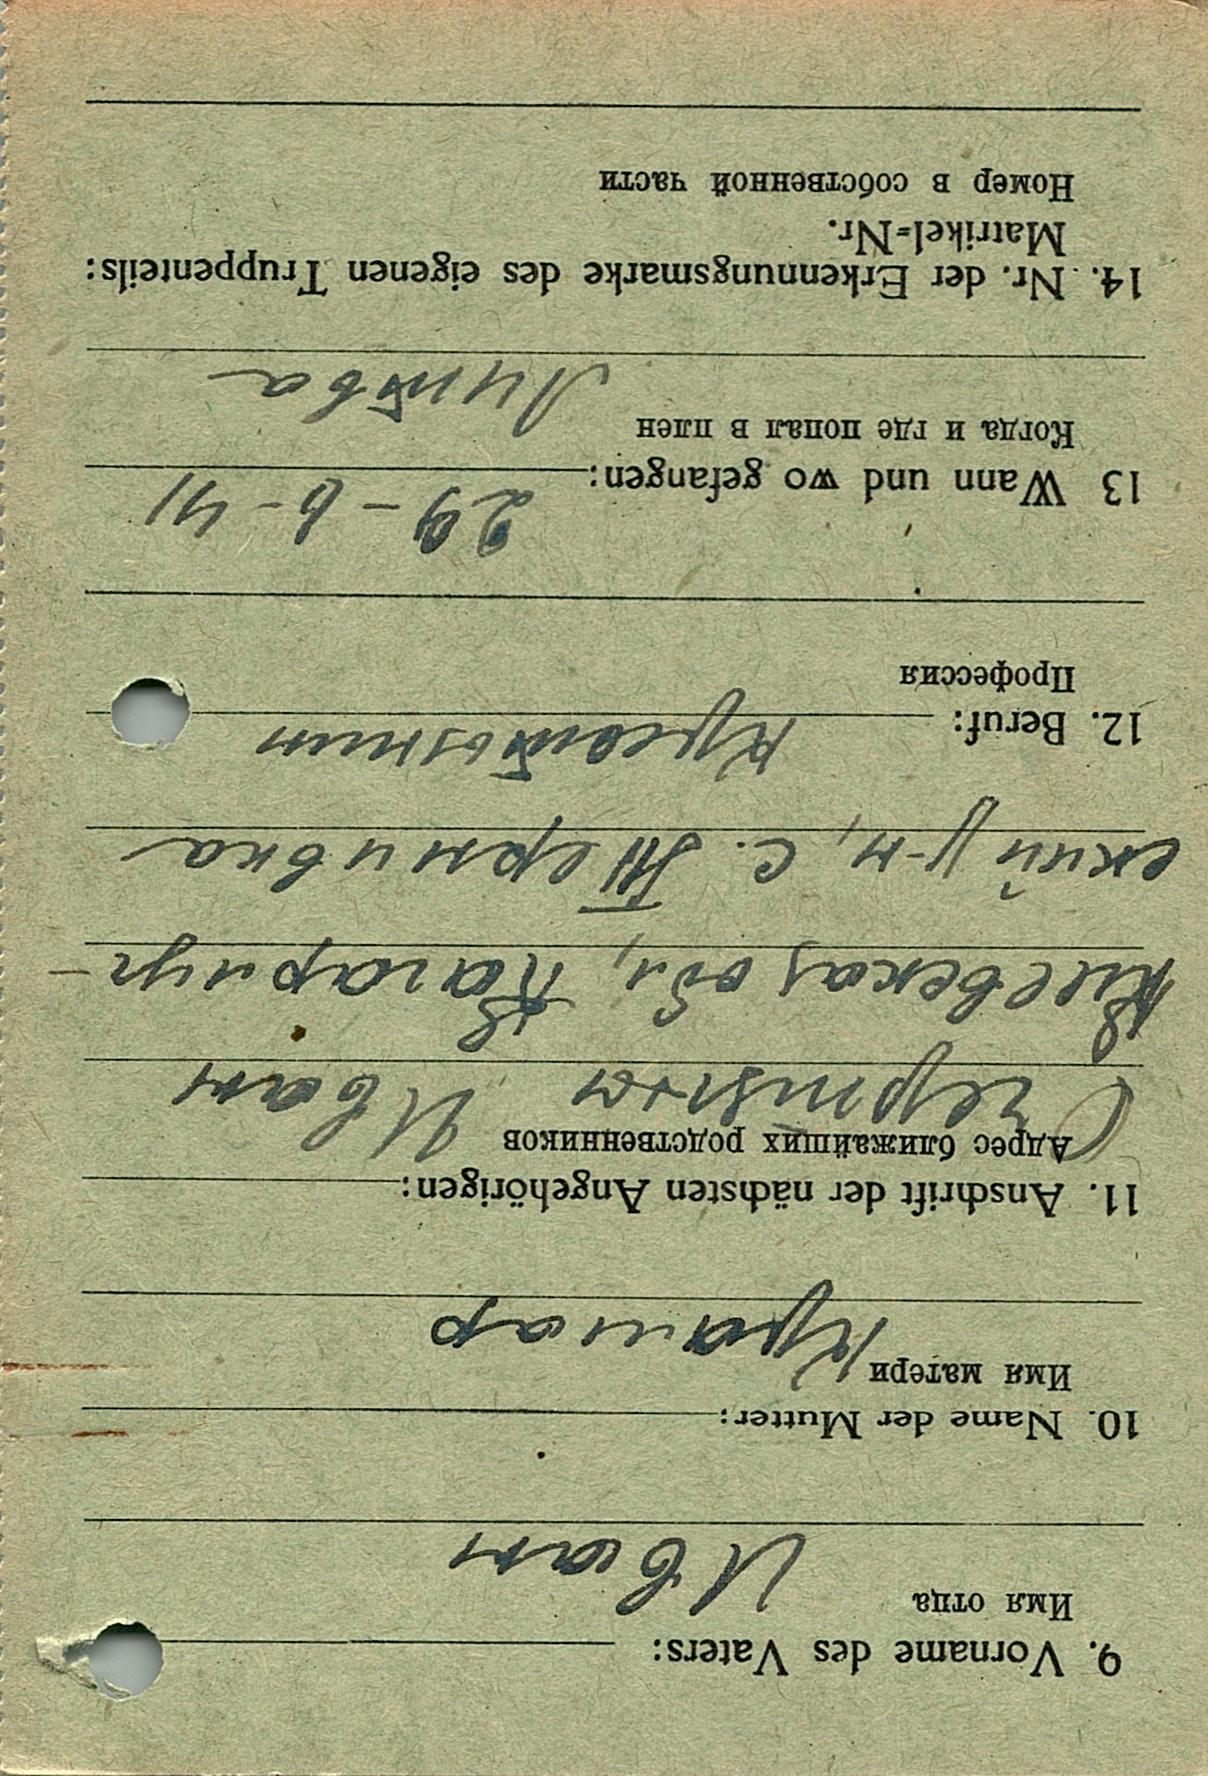 9. Vorname des Vaters:
Имя отца
Иван
10. Name der Mutter:
Имя матери
11. Anschrift der nächsten Angehörigen:
Адрес ближайших родственников
Иван
Киевская обл, Кагарлуг-
ский у-н, с. Тернивка
12. Beruf:
Профессия
29-6-41
13 Wann und wo gefangen:
Когда и где попал в плен
Литва
14. Nr. der Erkennungsmarke des eigenen Truppenteils:
Matrikel-Nr.
Номер в собственной части